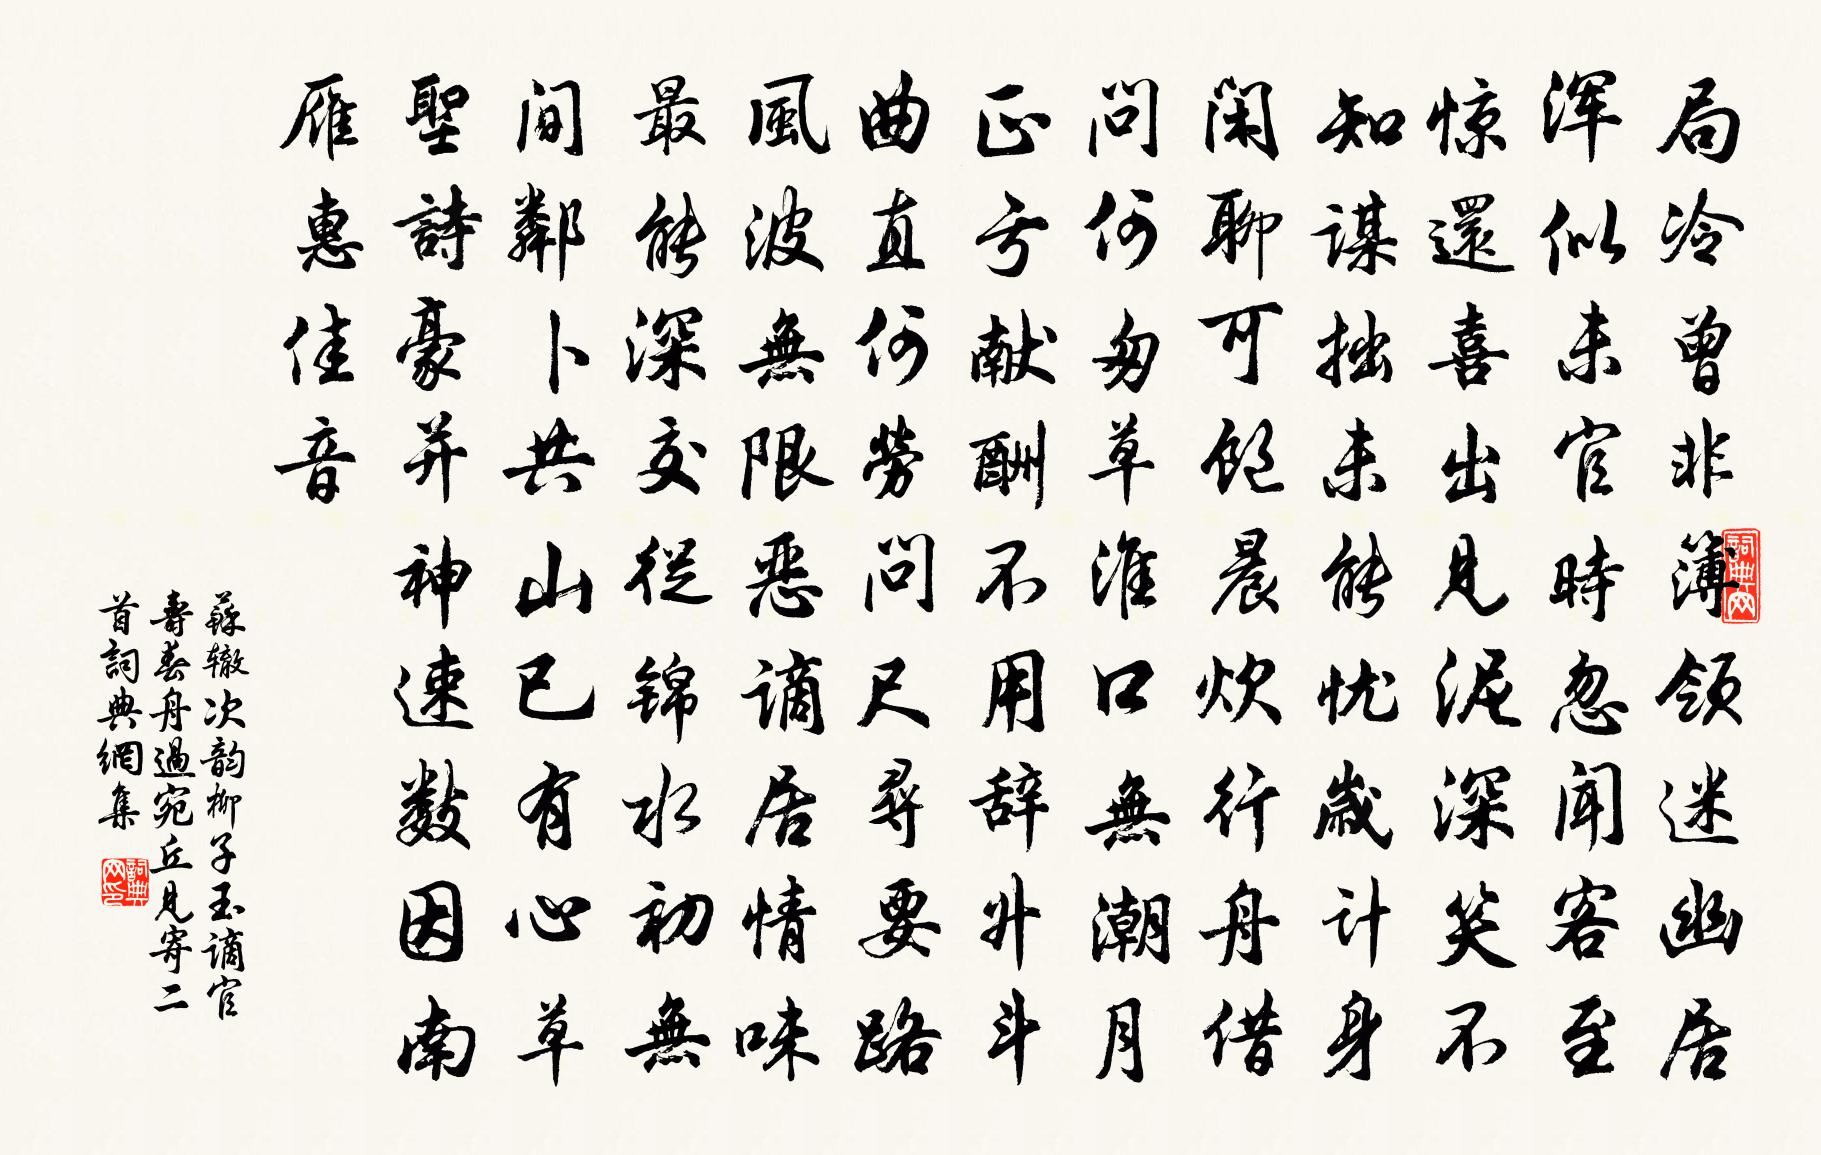 局冷曾非簿领迷幽居
浑似未官時忽闻客至
惊還喜出見泥深笑不
知谋拙未能忧歲计身
闲聊可饱晨炊行舟借
问何匆草淮口無潮月
正亏献酬不用辞升斗
曲直何劳问尺尋要路
風波無限恶谪居情味
最能深交從锦水初無
间鄰卜共山已有心草
聖詩豪并神速数因南
雁惠佳音
蘇辙次韵柳子玉谪官
壽春舟過宛丘見寄二
首詞典網集
詞典网
詞典网印